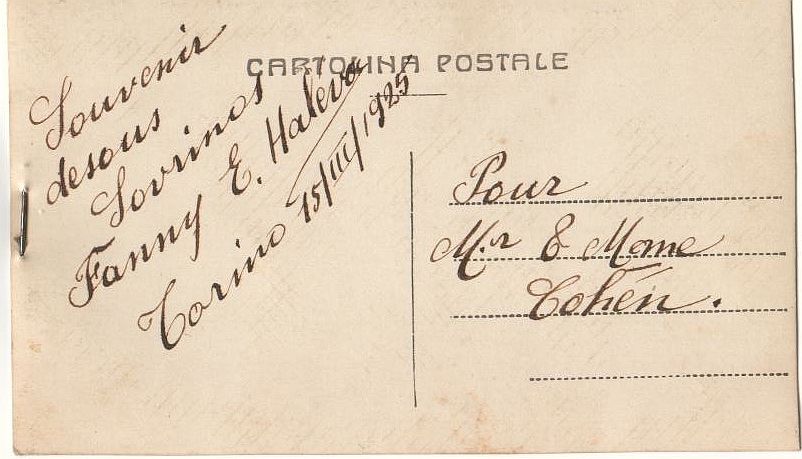 CARTOLINA POSTALE
Souvenir
desous
Sovrinos
Fanny E. Haleva
Torino 15/III/1925
Pour
M.r & Mme
Cohén.